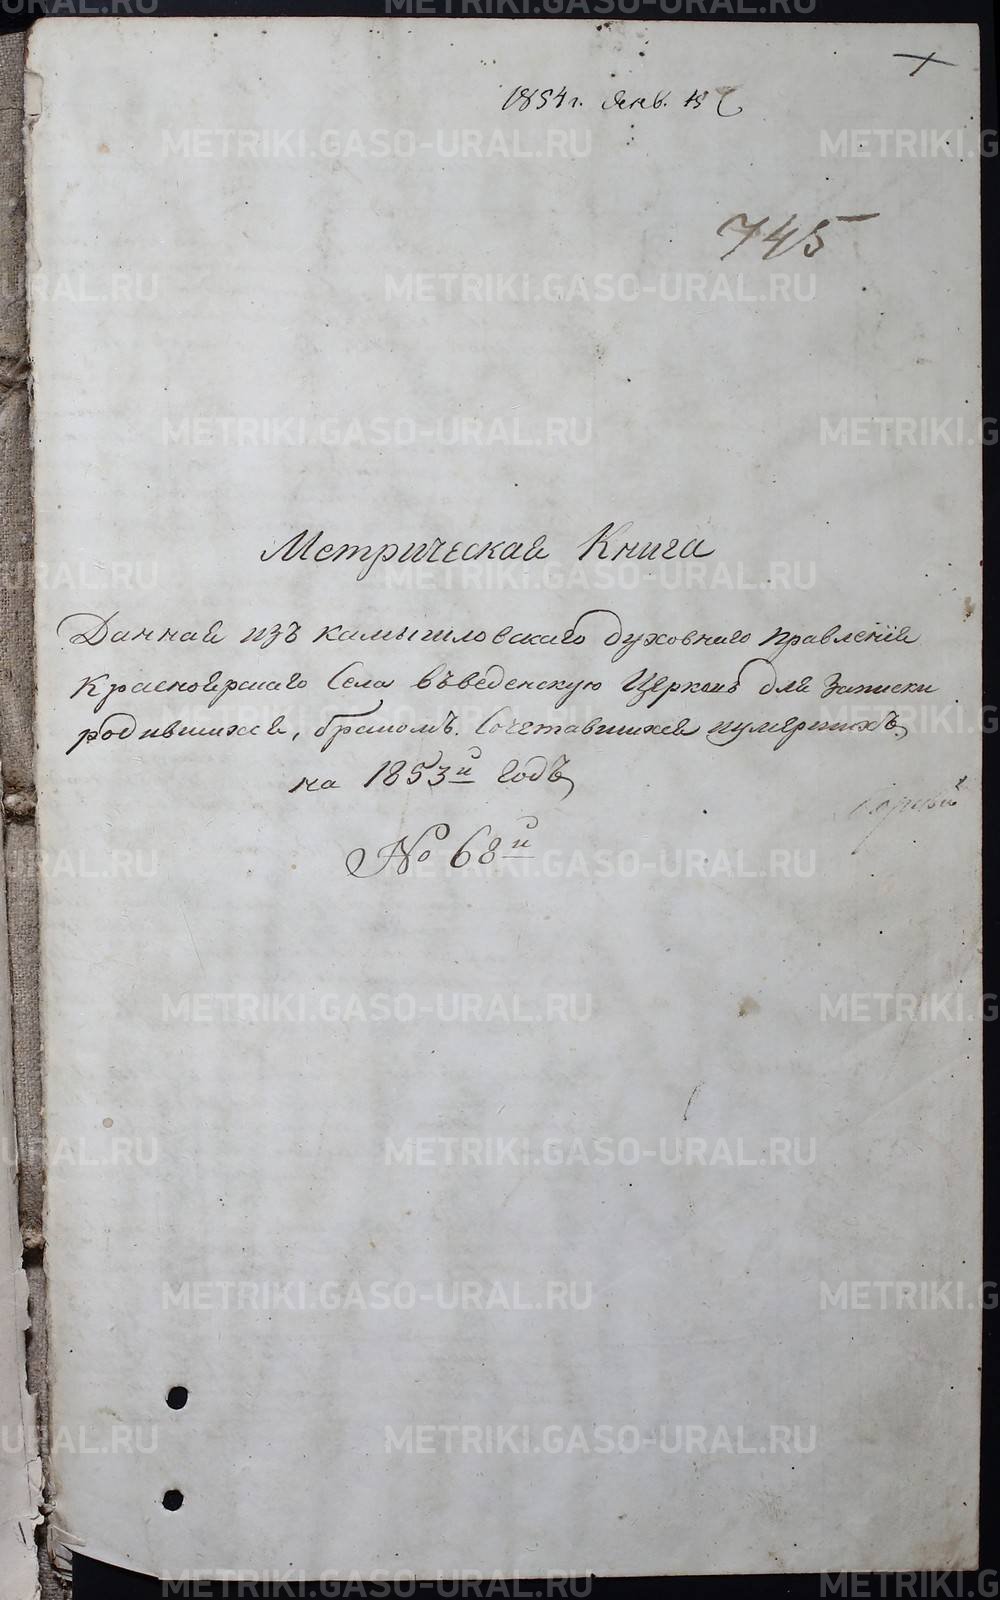 1854 г. Янв. 18
745
Метрическая Книга
Данная изъ камышловскаго духовнаго правленія
Красноярскаго Села въведенскую Церковь для Записки
родившихся, бракомъ Сочетавшихся иумершихъ
на 1853й годъ
№ 68й
METRIKI.GASO-URAL.RU